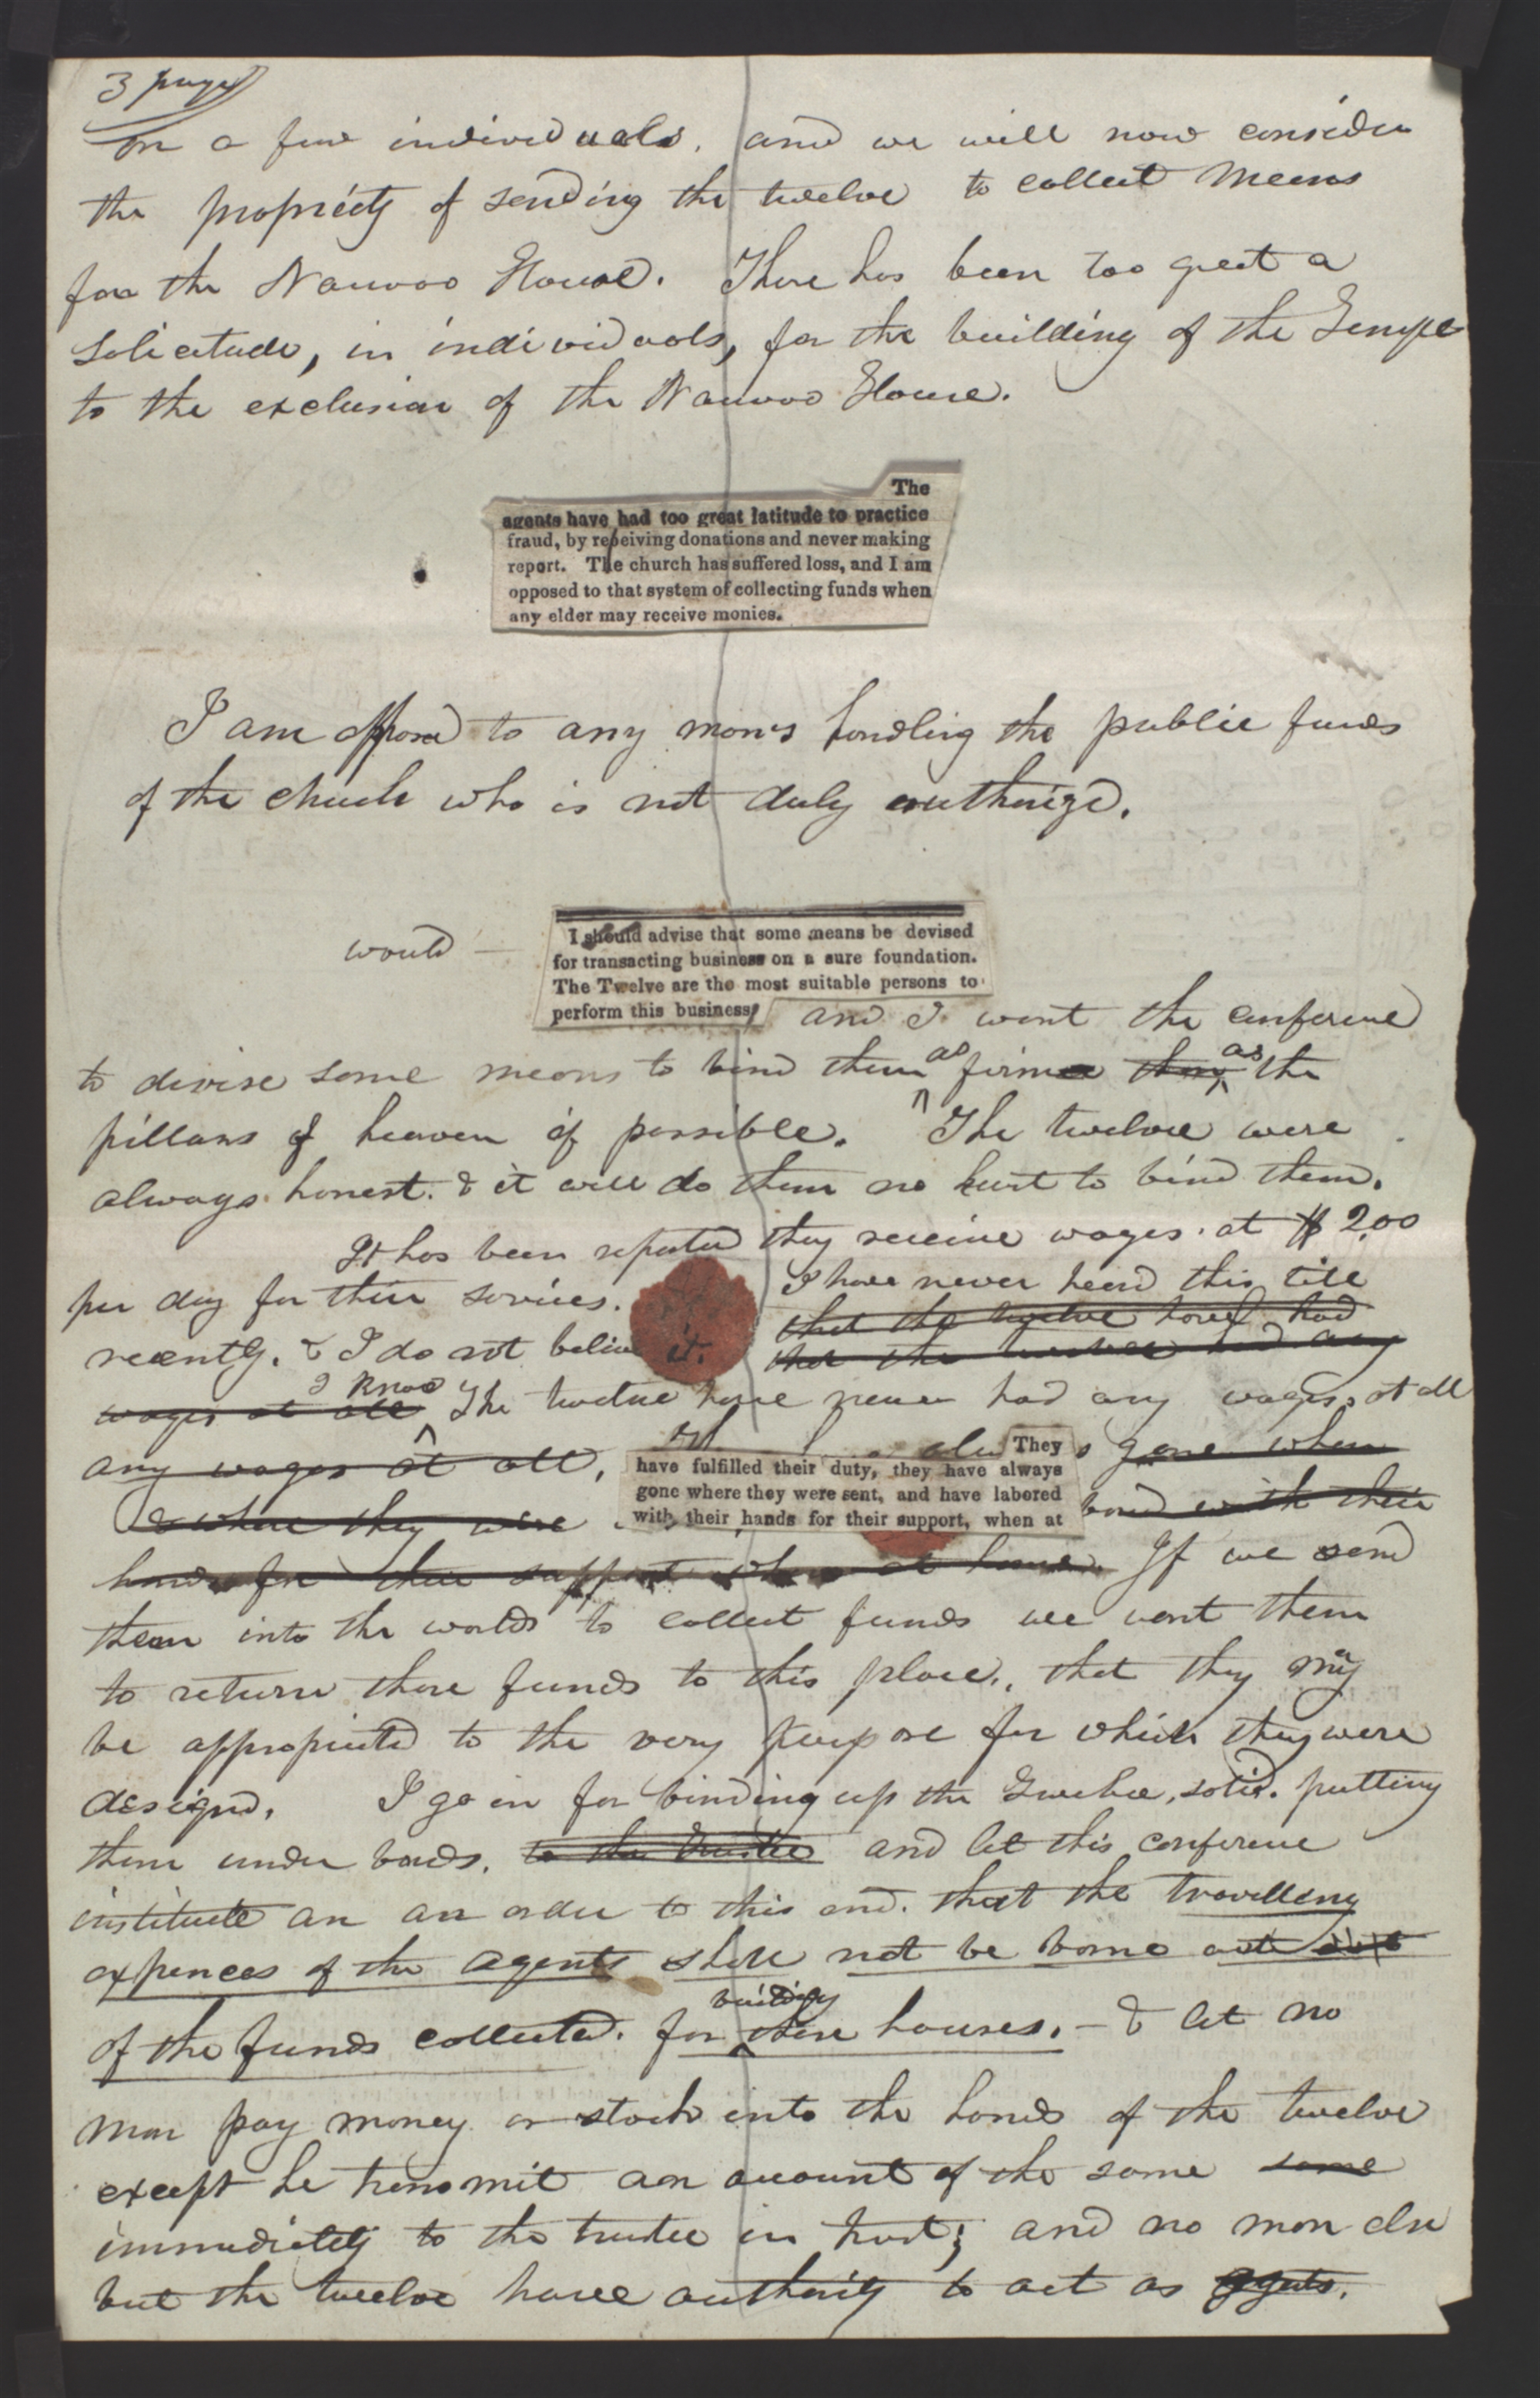 3 page
on a few individuals, and we will now consider
the propriety of sending the twelve to collect means
for the Nauvoo House. There has been too great a
solicitude, in individuals, for the building of the Temple
to the exclusion of the Nauvoo House.
The
agents have had too great latitude to practice
fraud, by receiving donations and never making
report. The church has suffered loss, and I am
opposed to that system of collecting funds when
any elder may receive monies.
I am opposed to any man's handling the public funds
of the church who is not duly authorizd.
would — I should advise that some means be devised
for transacting business on a sure foundation.
The Twelve are the most suitable persons to
perform this business, and I want the conference
to devise some means to bind them as firm as the
pillars of heaven if possible. The twelve were
always honest. & it will do them no hurt to bind them.
It has been reported they receive wages at $2.00
per day for their services. I have never heard this till
recently. & I do not believe it. that the twelve have had
that the twelve had any
wages at all I know The twelve have never had any wages at all
any wages at all, They gone when
have fulfilled their duty, they have always
gone where they were sent, and have labored
with their hands for their support, when at
& where they were with their
hands for their support when at home. If we send
them into the world to collect funds we want them
to return those funds to this place, that they may
be appropriated to the very purpose for which they were
designd. I go in for binding up the Twelve, solid. putting
them under bonds. to the trustee and let this conference
institute an an order to this end. that the travelling
expences of the agents shall not be borne out
of the funds collected for building these houses. — & let no
man pay money or stock into the hands of the twelve
except he transmit an account of the same same
immediately to the trustee in trust; and no man else
but the twelve have authority to act as agents.